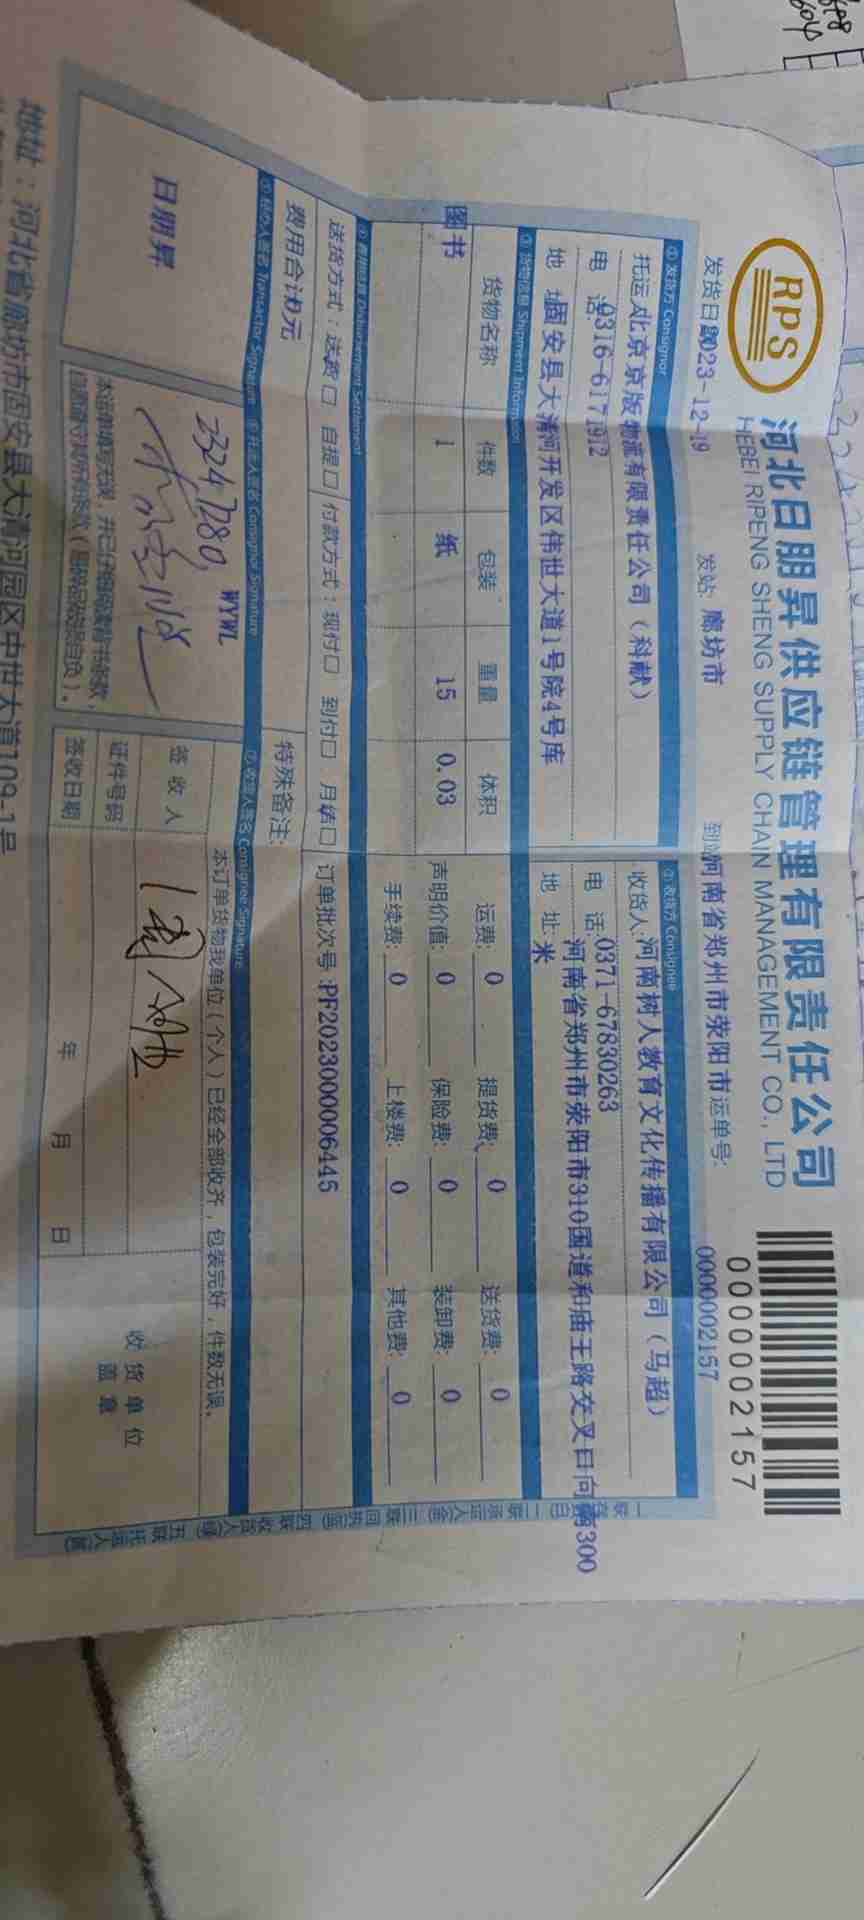 RPS
河北日朋昇供应链管理有限责任公司
HEBEI RIPENG SHENG SUPPLY CHAIN MANAGEMENT CO., LTD
0000002157
发货日期2023-12-19 发站: 廊坊市 到站河南省郑州市荥阳市 运单号: 0000002157
① 发货方 Consignor
托运人北京京版物流有限责任公司（科献）
电 话0316-6171912
地 址固安县大清河开发区伟世大道1号院4号库
② 收货方 Consignee
收货人: 河南树人教育文化传播有限公司（马超）
电 话: 0371-67830263
地 址: 河南省郑州市荥阳市310国道和庙王路交叉口向南300
米
③ 货物信息 Shipment Information
货物名称 件数 包装 重量 体积
图书 1 纸 15 0.03
运费: 0 提货费: 0 送货费: 0
声明价值: 0 保险费: 0 装卸费: 0
手续费: 0 上楼费: 0 其他费: 0
④ 费用结算 Disbursement Settlement
送货方式：送货□ 自提□ 付款方式：现付□ 到付□ 月结□ 订单批次号:PF2023000006445
费用合计0元 特殊备注:
⑤ 经办人签名 Transactor Signature ⑥ 托运人签名 Consignor Signature ⑦ 收货人签名 Consignee Signature
日朋昇
2324 7280 WYWL
本订单货物我单位(个人)已经全部收齐，包装完好，件数无误。
签 收 人
证件号码
签收日期 年 月 日
收货单位
盖 章
地址：河北省廊坊市固安县大清河园区中世大道109-1号